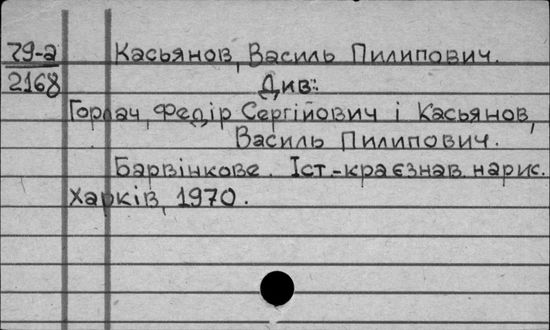 79-а Касьянов, Василь Пилипович.
2168 Див:
Горлач, Федір Сергійович і Касьянов,
Василь Пилипович.
Барвінкове. Іст.-краєзнав. нарис.
Харків, 1970.